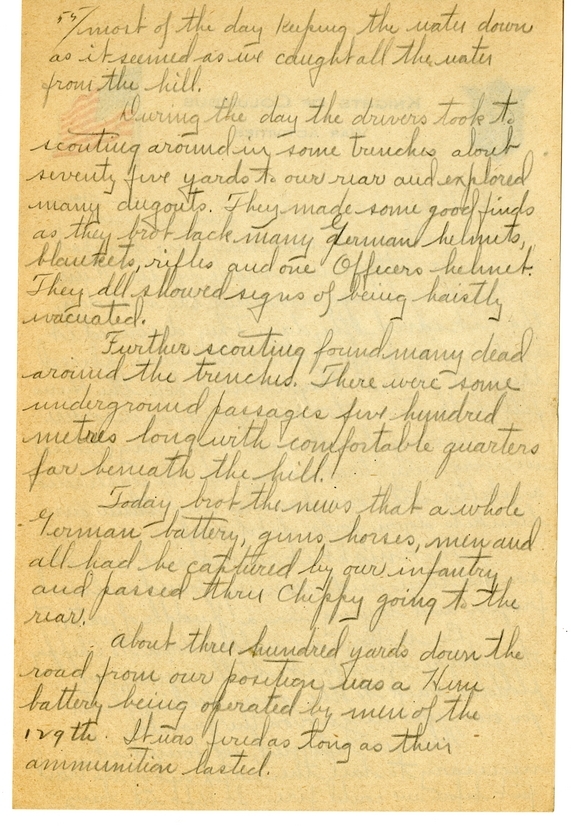 55/ most of the day keeping the water down
as it seemed as we caught all the water
from the hill.
During the day the drivers took to
scouting around in some trenches about
seventy five yards to our rear and explored
many dugouts. They made some good finds
as they brot back many German helmets,
blankets, rifles and one Officers helmet.
They all showed signs of being haistly
evacuated.
Further scouting found many dead
around the trenches. There were some
underground passages five hundred
metres long with comfortable quarters
far beneath the hill.
Today brot the news that a whole
German battery, guns horses, men and
all had be captured by our infantry
and passed thru Chippy going to the
rear.
About three hundred yards down the
road from our position was a Hun
battery being operated by men of the
129th. It was fired as long as their
ammunition lasted.